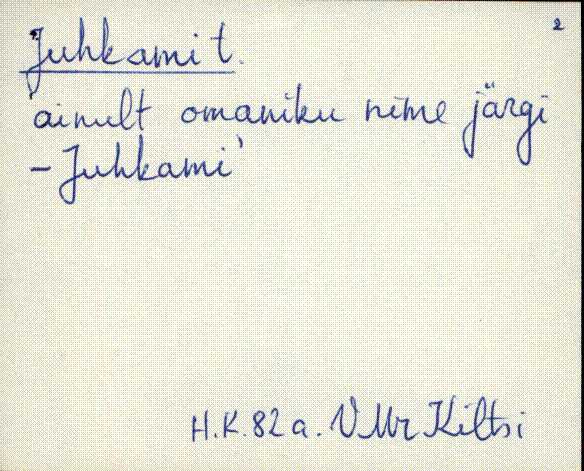 2
Juhkami t.
'ainult omaniku nime järgi
– Juhkami'
H.K. 82 a. VMr Kiltsi